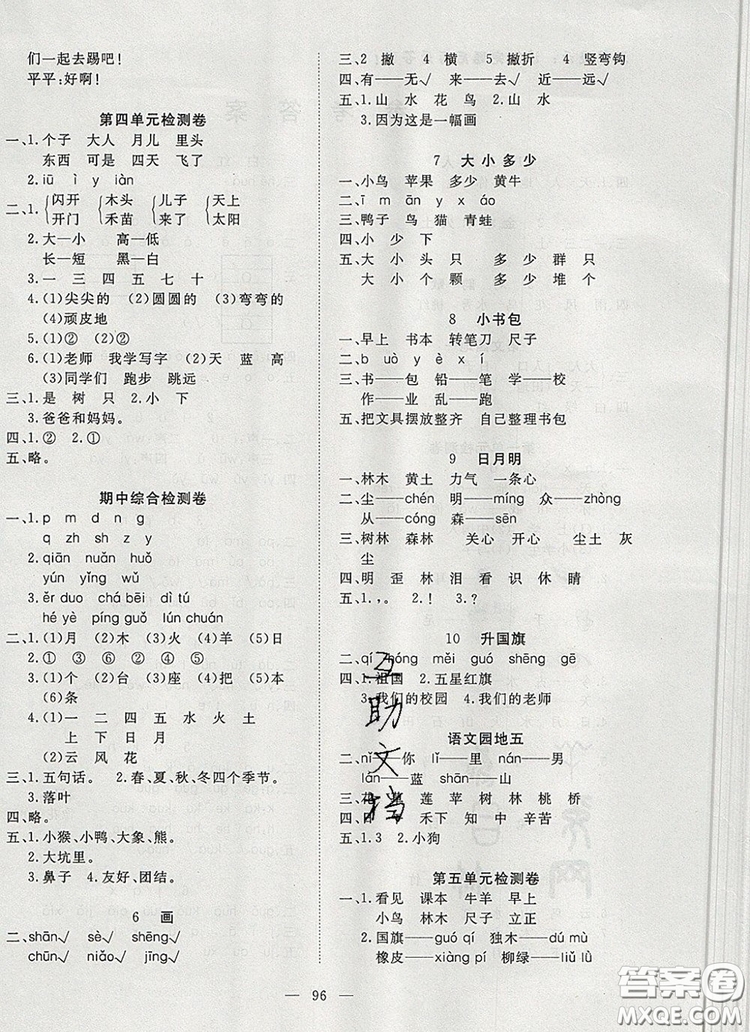 们一起去踢吧!
平平:好啊!
第四单元检测卷
一、1.个子 大人 月儿 里头
东西 可是 四天 飞了
2.iū ì y iàn
二、1.{闪开 {木头 {儿子 {天上
开门 禾苗 来了 太阳
2.大—小 高—低
长—短 黑—白
3.一 三 四 五 七 十
4.(1)尖尖的 (2)圆圆的 (3)弯弯的
(4)顽皮地
5.(1)② (2)②
6.(1)老师 我学写字 (2)天 蓝 高
(3)同学们 跑步 跳远
三、1.是 树 只 2.小 下
3.爸爸和妈妈。
四、1.② 2.①
五、略。
期中综合检测卷
一、1.p m d n g
q zh sh z y
2.qiān nuǎn huǒ
yún yǐng wǔ
3.ěr duo chá bēi dì tú
hé yè píng guǒ lún chuán
二、1.(1)月 (2)木 (3)火 (4)羊 (5)日
2.① ③ ⑥ ② ④ ⑤
3.(1)个 (2)台 (3)座 (4)把 (5)本
(6)条
4.(1)一 二 四 五 水 火 土
上 下 日 月
(2)云 风 花
三、1.五句话。 2.春、夏、秋、冬四个季节。
3.落叶
四、略。
五、1.小猴、小鸭、大象、熊。
2.大坑里。
3.鼻子 4.友好、团结。
6 画
二、shān√ sè√ shēng√
chūn√ niǎo√ jīng√
三、2 撇 4 横 5 撇折 4 竖弯钩
四、有——无√ 来——去√ 近——远√
五、1.山 水 花 鸟 2.山 水
3.因为这是一幅画
7 大小多少
一、小鸟 苹果 多少 黄牛
二、ī m ā n y x ao
三、鸭子 鸟 猫 青蛙
四、小 少 下
五、大 小 头 只 多 少 群 只
大 小 个 颗 多 少 堆 个
8 小书包
一、早上 书本 转笔刀 尺子
二、b uò y è x í
三、书——包 铅——笔 学——校
作——业 乱——跑
五、把文具摆放整齐 自己整理书包
9 日月明
一、林木 黄土 力气 一条心
二、尘——chén 明——míng 众——zhòng
从——cóng 森——sēn
三、树林 森林 关心 开心 尘土 灰
尘
四、明 歪 林 泪 看 识 休 晴
五、1., 。 2.! 3.?
10 升国旗
二、qí hóng měi guó shēng gē
四、1.祖国 2.五星红旗
3.我们的校园 4.我们的老师
语文园地五
二、nǐ——你 lǐ——里 nán——男
lán——蓝 shān——山
三、花 草 莲 苹 树 林 桃 桥
四、口 禾下 知 中 辛苦
五、1.3 2.小狗
第五单元检测卷
一、1.看见 课本 牛羊 早上
小鸟 林木 尺子 立正
2.国旗——guó qí 独木——dú mù
橡皮——xiàng pí 柳绿——liǔ lǜ
互助文档
96
答案圈
MXQE.COM